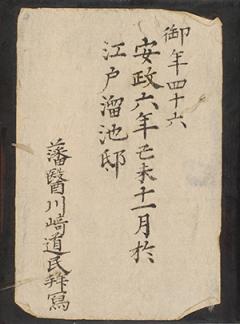 御年四十六
安政六年己未十一月於
江戸溜池邸
藩醫川﨑道民拜寫